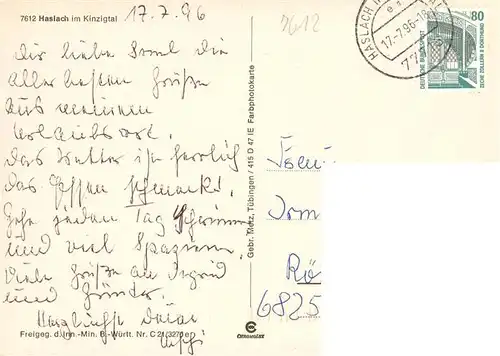 7612 Haslach im Kinzigtal
17.7.96
7612
HASLACH I
17.-7.96-18
77
80
DEUTSCHE BUNDESPOST
ZECHE ZOLLERN II DORTMUND
Dir liebe die
aller besten Grüße
aus meinem
Urlaubsort.
das Wetter ist herrlich
das Essen schmeckt.
Gehe jeden Tag schwimmen
und viel Spazieren.
Viele Grüße an Ingrid
und Günter.
Herzlichst Deine
Gebr. Metz, Tübingen / 415 D 47 IE Farbphotokarte
Fam
Irm
Rö
6825
Freigeg. d. Inn.-Min. B.-Württ. Nr. C 21/3270